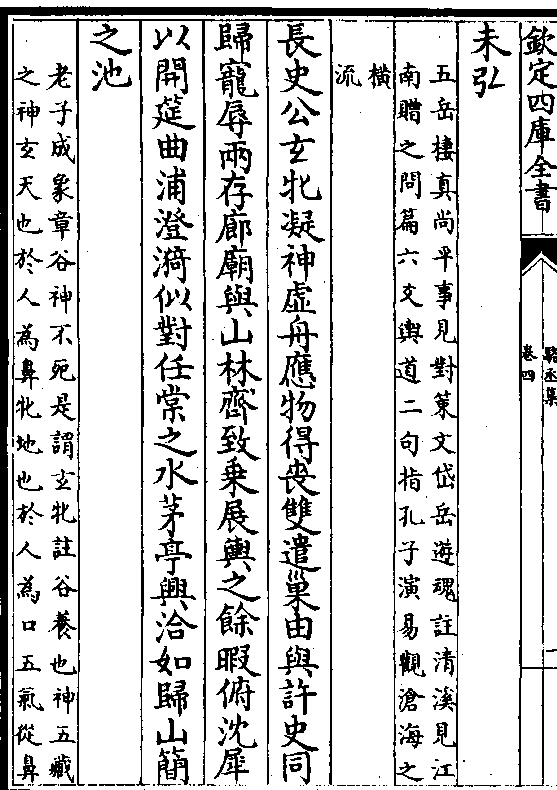 欽定四庫全書
駱丞集
卷四
未弘
五岳棲真尚平事見對策文岱岳遊魂註清溪見江
南贈之問篇六爻輿道二句指孔子演易觀滄海之
橫
流
長史公玄牝凝神虛舟應物得喪雙遣巢由與許史同
歸寵辱兩存廊廟與山林齊致乗展輿之餘暇俯沈犀
以開筵曲浦澄漪似對任棠之水茅亭興洽如歸山簡
之池
老子成象章谷神不死是謂玄牝註谷養也神五藏
之神玄天也於人為鼻牝地也於人為口五氣從鼻